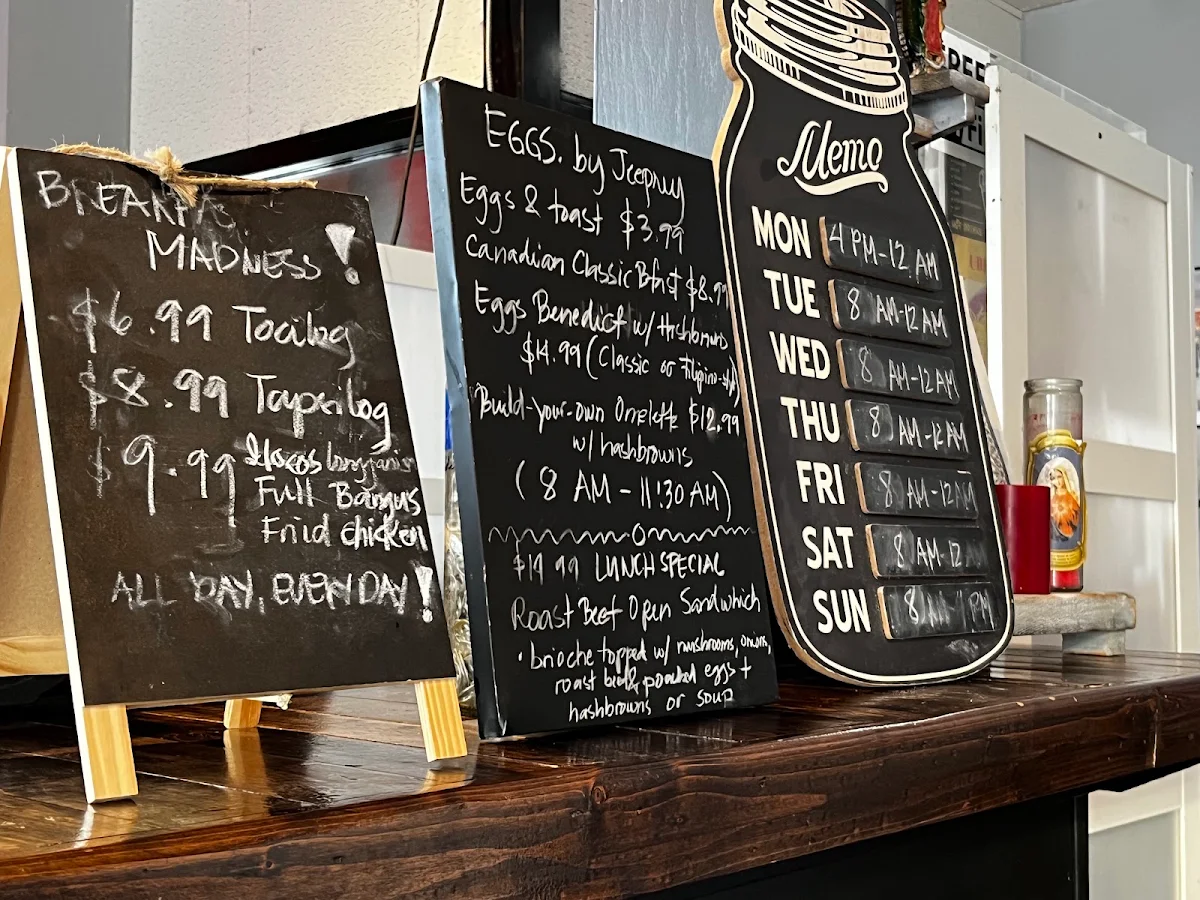 BREAKFAS
MADNESS!
$6.99 Tocilog
$8.99 Tapsilog
$9.99 Ilocos longganisa
Full Bangus
Fried Chicken
ALL DAY, EVERYDAY!
EGGS. by Jeepney
Eggs & toast $3.99
Canadian Classic Bfast $8.99
Eggs Benedict w/ Hashbrowns
$14.99 (Classic or Filipino-style)
Build-your-own Omelette $12.99
w/ hashbrowns
(8 AM - 11:30 AM)
$14.99 LUNCH SPECIAL
Roast Beef Open Sandwhich
• brioche topped w/ mushrooms, onions,
roast beef, poached eggs +
hashbrowns or soup
Memo
MON 4 PM-12 AM
TUE 8 AM-12 AM
WED 8 AM-12 AM
THU 8 AM-12 AM
FRI 8 AM-12 AM
SAT 8 AM-12
SUN 8 AM PM
FREE